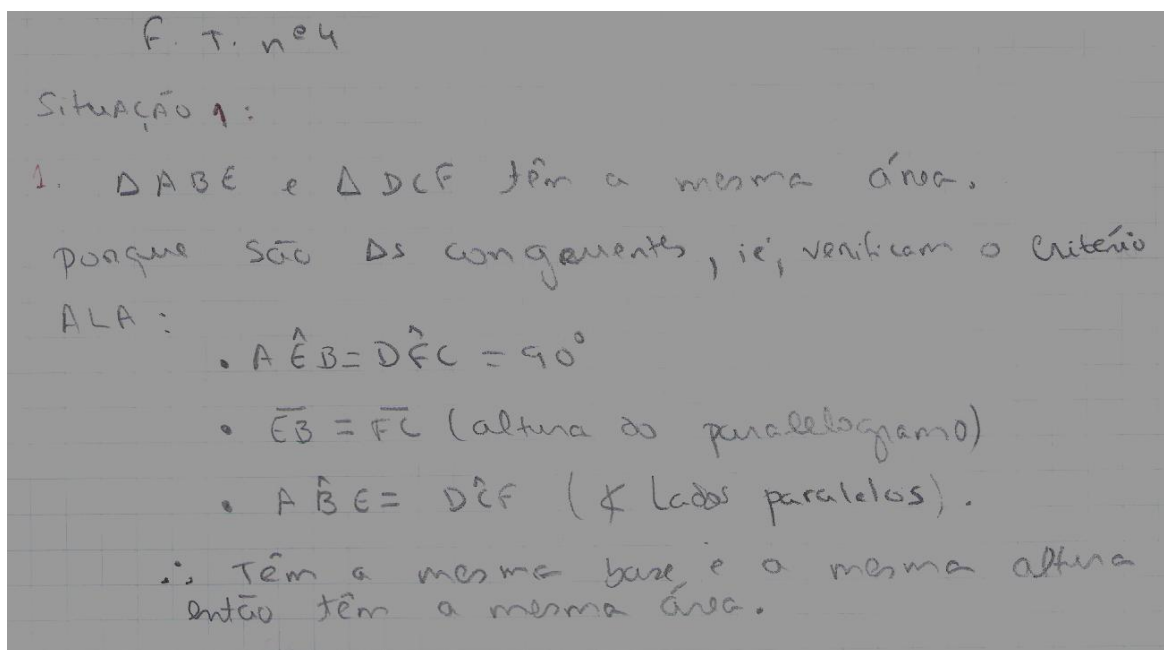 F. T. nº4
Situação 1:
1. Δ ABE e Δ DCF têm a mesma área.
Porque são Δs congruentes, ié, verificam o critério
ALA:
• A Ê B = D F̂ C = 90°
• E̅B̅ = F̅C̅ (altura do paralelogramo)
• A B̂ E = D Ĉ F (∢ Lados paralelos).
∴ Têm a mesma base e a mesma altura
então têm a mesma área.